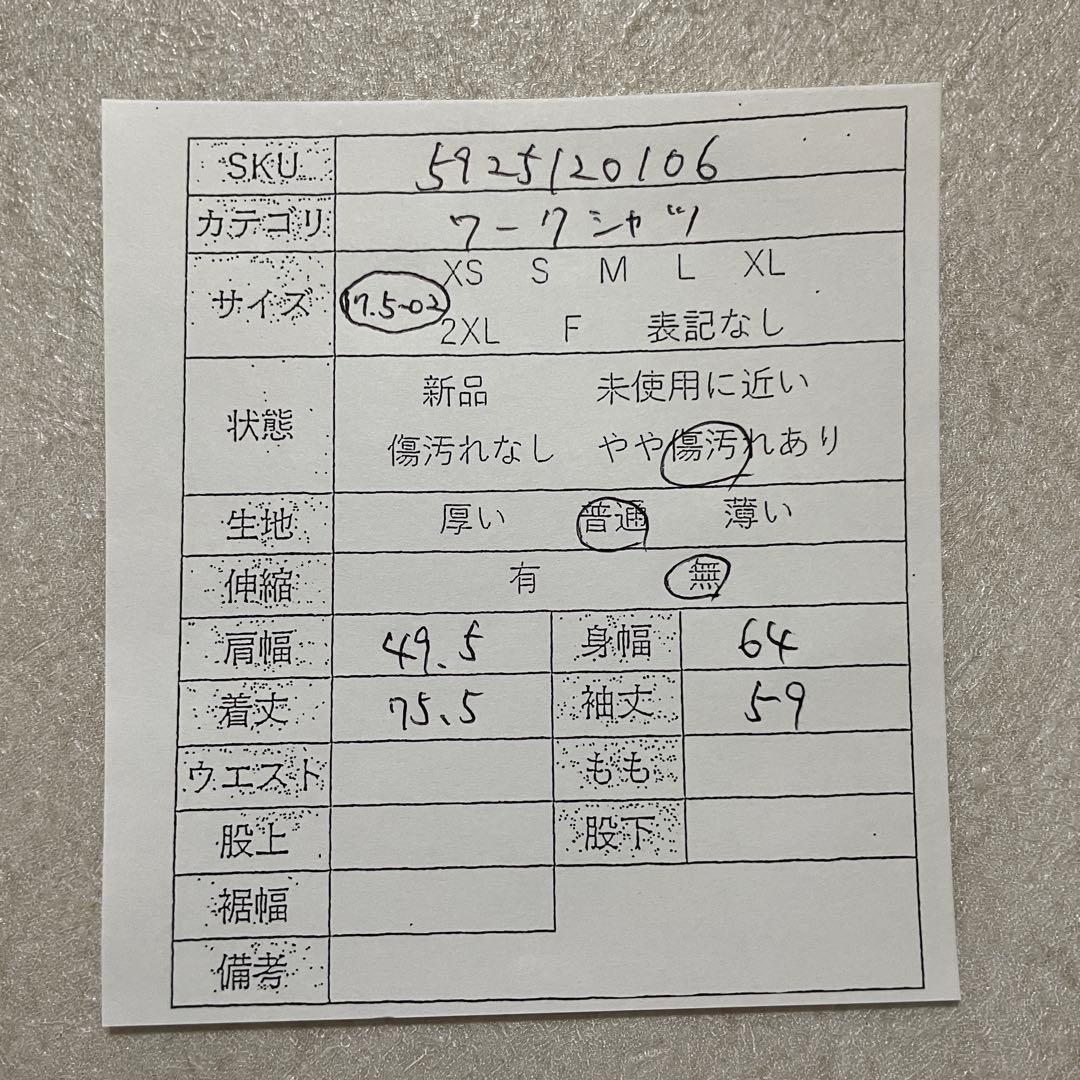 SKU 5925120106
カテゴリ ワークシャツ
サイズ 17.5-02 XS S M L XL
2XL F 表記なし
状態 新品 未使用に近い
傷汚れなし やや傷汚れあり
生地 厚い 普通 薄い
伸縮 有 無
肩幅 49.5 身幅 64
着丈 75.5 袖丈 59
ウエスト もも
股上 股下
裾幅
備考